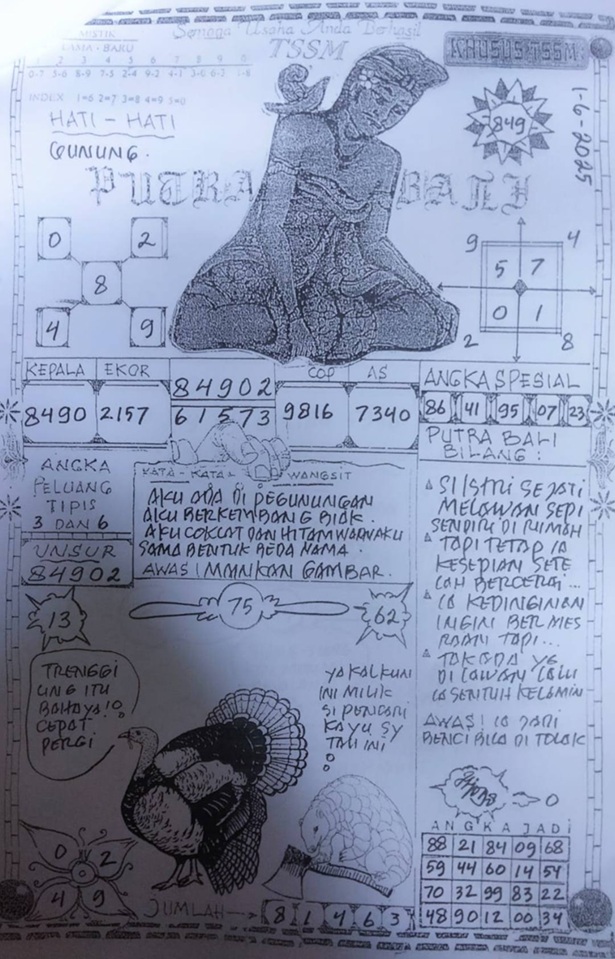 MISTIK
LAMA - BARU
1 2 3 4 5 6 7 8 9 0
0-7 5-6 8-9 7-5 2-4 9-2 4-1 3-0 6-2 1-8
INDEX 1=6 2=7 3=8 4=9 5=0
Semoga Usaha Anda Berhasil
TSSM
KHUSUS TSSM
1-6-2025
849
HATI - HATI
GUNUNG.
PUTRA BALI
0 2
8
4 9
9 4
5 7
0 1
2 8
KEPALA EKOR
8490 2157
84902
61573
COP AS
9816 7340
ANGKA SPESIAL
86 41 95 07 23
ANGKA
PELUANG
TIPIS
3 DAN 6
UNSUR
84902
KATA - KATA WANGSIT
AKU ADA DI PEGUNUNGAN
AKU BERKEMBANG BIAK.
AKU COKLAT DAN HITAM WARNAKU
SAMA BENTUK BEDA NAMA.
AWAS! MAINKAN GAMBAR.
PUTRA BALI
BILANG :
SI ISTRI SEJATI
MELAWAN SEPI
SENDIRI DI RUMAH
TAPI TETAP IA
KESEPIAN SETE
LAH BERCERAI...
IA KEDINGINAN
INGIN BERMES
RAAN TAPI...
TAK ADA YG
DI LAWAN LALU
IA SENTUH KELAMIN
AWAS! IA JADI
BENCI BILA DI TOLAK
13
75
62
TRENGGI
LING ITU
BAHAYA!
CEPAT
PERGI
YA KALKUN
INI MILIK
SI PENCARI
KAYU SY
TAU INI
0 2
4 9
JUMLAH
8 1 4 6 3
ANGKA JADI
88 21 84 09 68
59 44 60 14 54
70 32 99 83 22
48 90 12 00 34